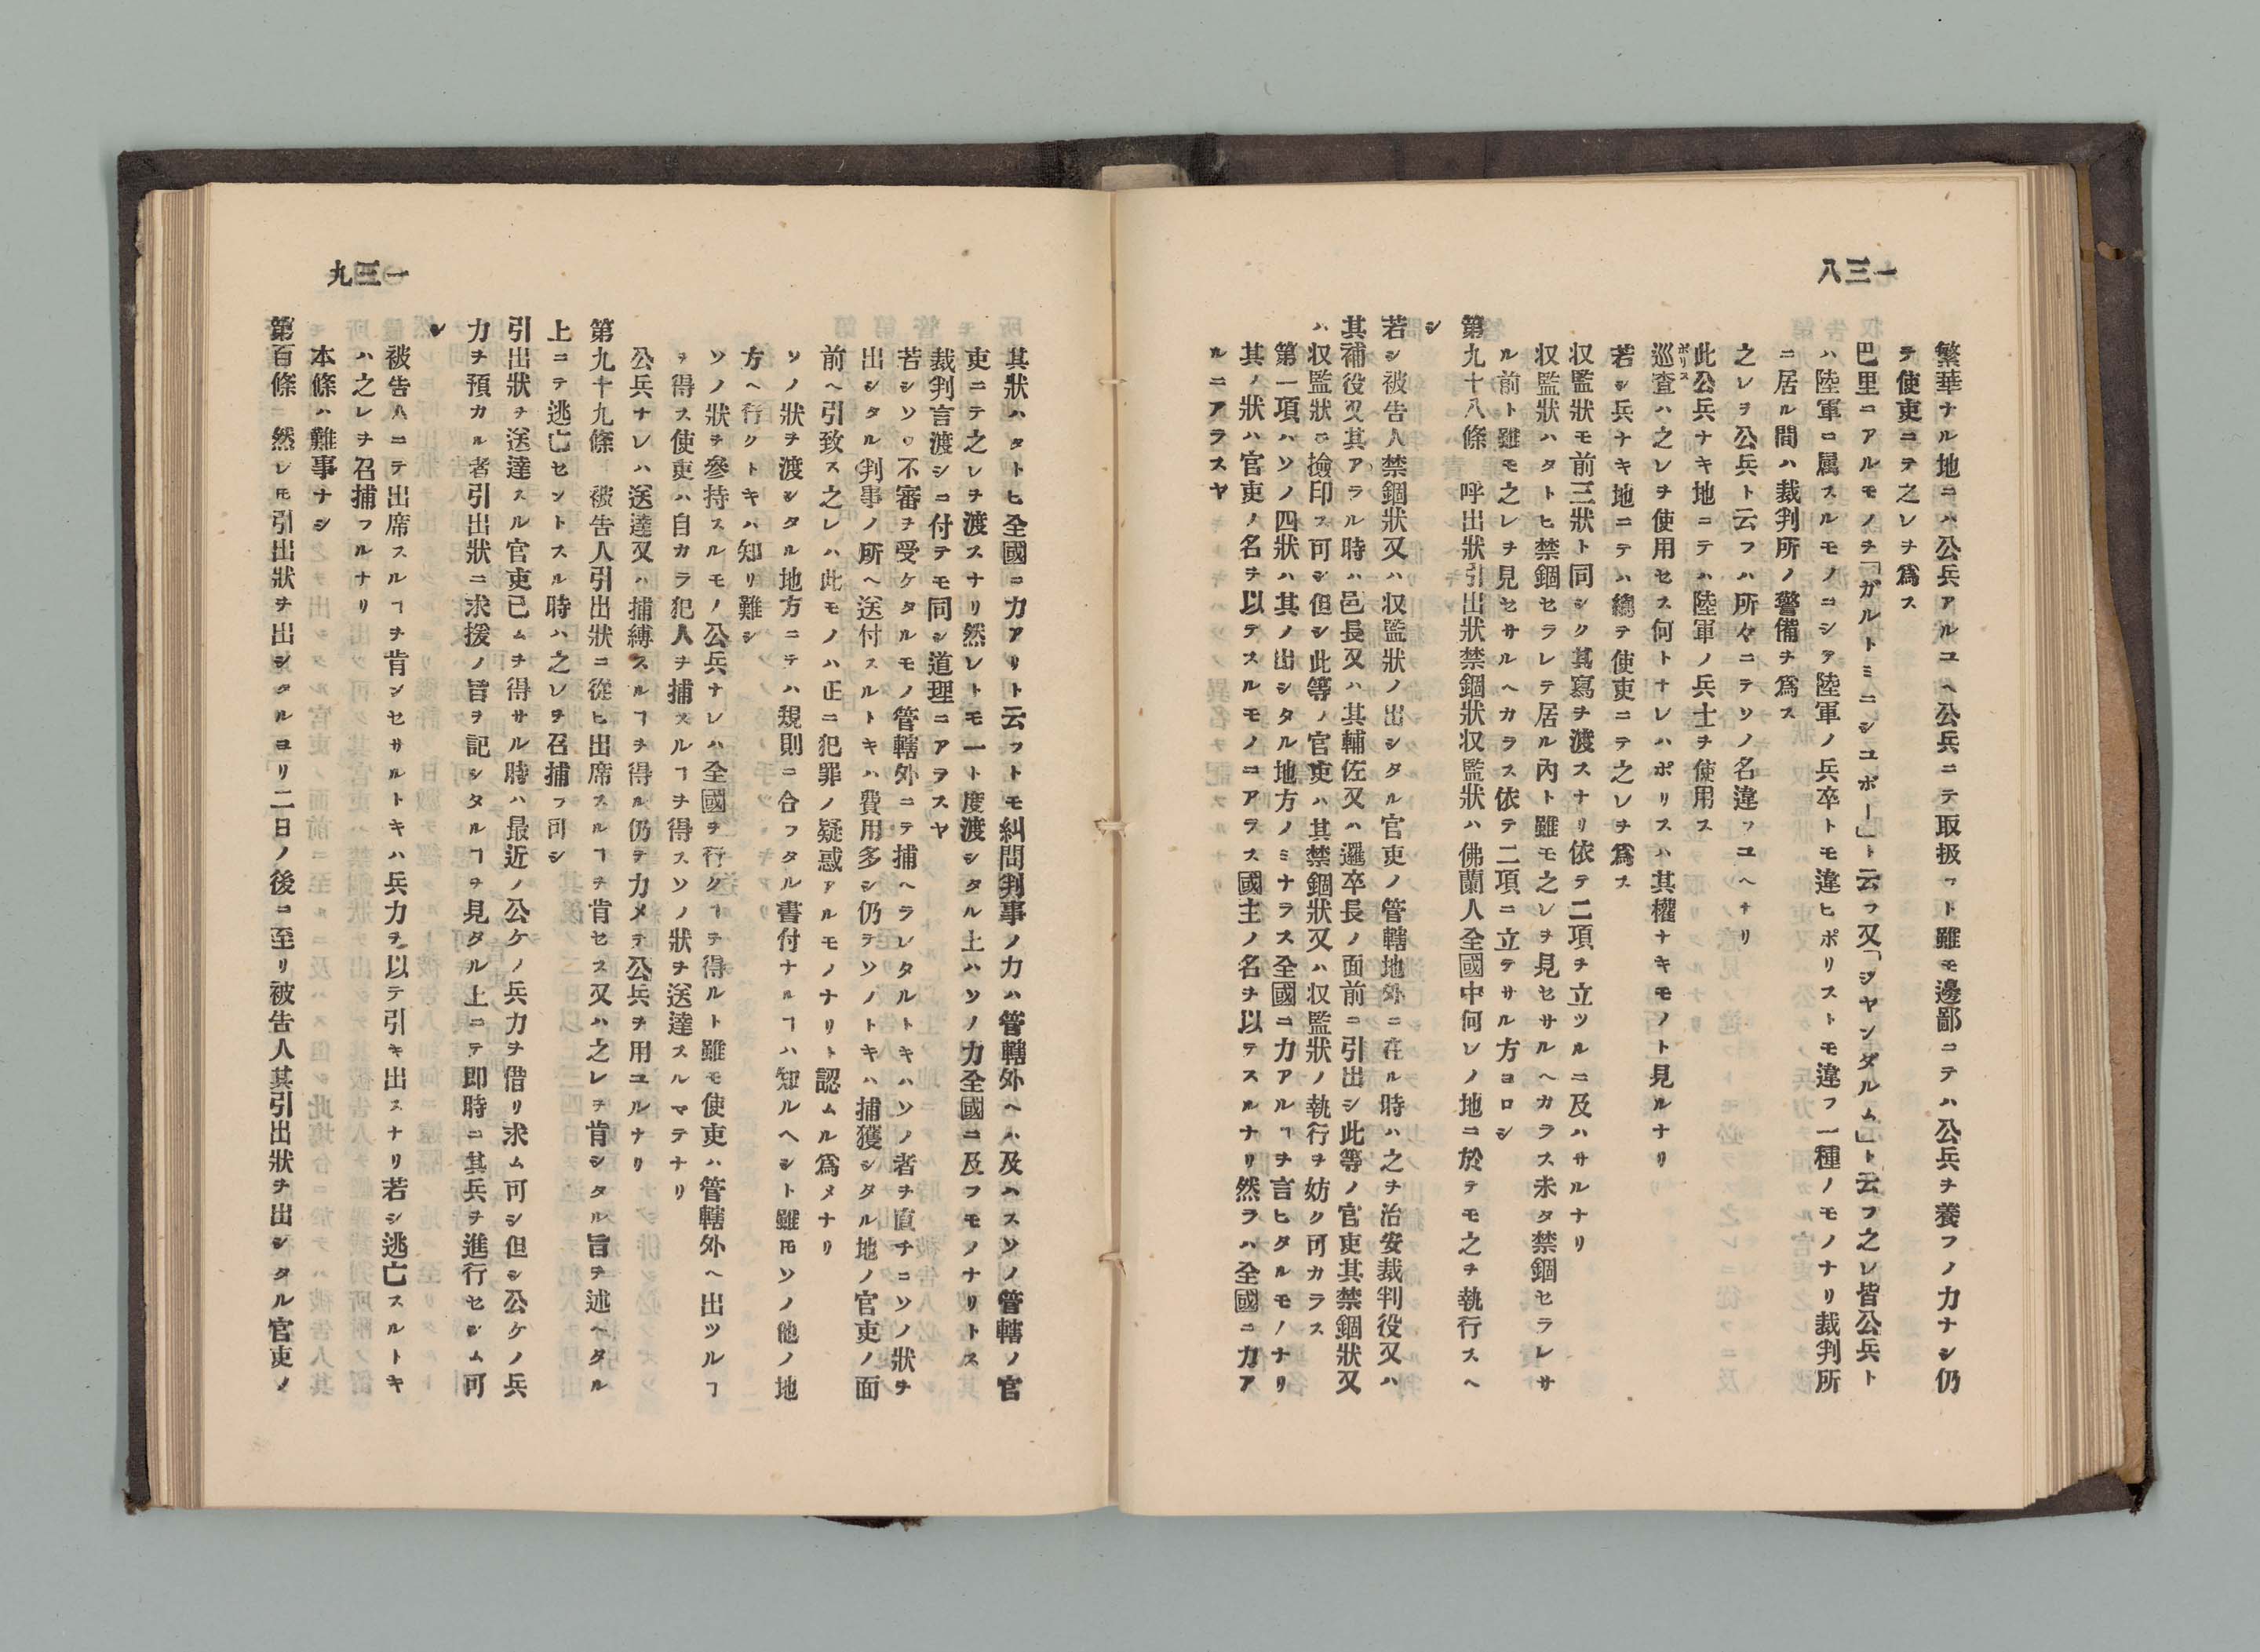 一三八
繁華ナル地ニハ公兵アルユヘ公兵ニテ取扱フト雖モ邊鄙ニテハ公兵ヲ養フノ力ナシ仍
テ使吏ニテ之レヲ爲ス
巴里ニアルモノヲ「ガルトミニシユポー」ト云フ又「ジヤンダルム」ト云フ之レ皆公兵ト
ハ陸軍ニ属スルモノニシテ陸軍ノ兵卒トモ違ヒポリストモ違フ一種ノモノナリ裁判所
ニ居ル間ハ裁判所ノ警備ヲ爲ス
之レヲ公兵ト云フハ所々ニテソノ名違フユヘナリ
此公兵ナキ地ニテハ陸軍ノ兵士ヲ使用ス
ポリス
巡査ハ之レヲ使用セス何トナレハポリスハ其權ナキモノト見ルナリ
若シ兵ナキ地ニテハ總テ使吏ニテ之レヲ爲ス
収監狀モ前三狀ト同シク其寫ヲ渡スナリ依テ二項ヲ立ツルニ及ハサルナリ
収監狀ハタトヒ禁錮セラレテ居ル內ト雖モ之レヲ見セサルヘカラス未タ禁錮セラレサ
ル前ト雖モ之レヲ見セサルヘカラス依テ二項ニ立テサル方ヨロシ
第九十八條　呼出狀引出狀禁錮狀収監狀ハ佛蘭人全國中何レノ地ニ於テモ之ヲ執行スヘ
シ
若シ被告人禁錮狀又ハ収監狀ノ出シタル官吏ノ管轄地外ニ在ル時ハ之ヲ治安裁判役又ハ
其補役又其アラル時ハ邑長又ハ其輔佐又ハ邏卒長ノ面前ニ引出シ此等ノ官吏其禁錮狀又
ハ収監狀ニ撿印ス可シ但シ此等ノ官吏ハ其禁錮狀又ハ収監狀ノ執行ヲ妨ク可カラス
第一項ハソノ四狀ハ其ノ出シタル地方ノミナラス全國ニ力アルヿヲ言ヒタルモノナリ
其ノ狀ハ官吏ノ名ヲ以テスルモノニアラス國主ノ名ヲ以テスルナリ然ラハ全國ニ力ア
ルニアラスヤ
一三九
其狀ハタトヒ全國ニ力アリト云フトモ糾問判事ノ力ハ管轄外ヘハ及ハスソノ管轄ノ官
吏ニテ之レヲ渡スナリ然レトモ一ト度渡シタル上ハソノ力全國ニ及フモノナリトス
裁判言渡シニ付テモ同シ道理ニアラスヤ
若シソノ不審ヲ受ケタルモノ管轄外ニテ捕ヘラレタルトキハソノ者ヲ直チニソノ狀ヲ
出シタル判事ノ所ヘ送付スルトキハ費用多シ仍テソノトキハ捕獲シタル地ノ官吏ノ面
前ヘ引致ス之レハ此モノハ正ニ犯罪ノ疑惑アルモノナリト認ムル爲メナリ
ソノ狀ヲ渡シタル地方ニテハ規則ニ合フタル書付ナルヿハ知ルヘシト雖モソノ他ノ地
方ヘ行クトキハ知リ難シ
ソノ狀ヲ參持スルモノ公兵ナレハ全國ヲ行クヿヲ得ルト雖モ使吏ハ管轄外ヘ出ツルヿ
ヲ得ス使吏ハ自カラ犯人ヲ捕スルヿヲ得スソノ狀ヲ送達スルマテナリ
公兵ナレハ送達又ハ捕縛スルヿヲ得ル仍テ力メテ公兵ヲ用ユルナリ
第九十九條　被告人引出狀ニ從ヒ出席スルヿヲ肯セス又ハ之レヲ肯シタル旨ヲ述ヘタル
上ニテ逃亡セントスル時ハ之レヲ召捕フ可シ
引出狀ヲ送達スル官吏已ムヲ得サル時ハ最近ノ公ケノ兵力ヲ借リ求ム可シ但シ公ケノ兵
力ヲ預カル者引出狀ニ求援ノ旨ヲ記シタルヿヲ見タル上ニテ即時ニ其兵ヲ進行セシム可
シ
被告人ニテ出席スルヿヲ肯ンセサルトキハ兵力ヲ以テ引キ出スナリ若シ逃亡スルトキ
ハ之レヲ召捕フルナリ
本條ハ難事ナシ
第百條　然レ𪜈引出狀ヲ出シタルヨリ二日ノ後ニ至リ被告人其引出狀ヲ出シタル官吏ノ